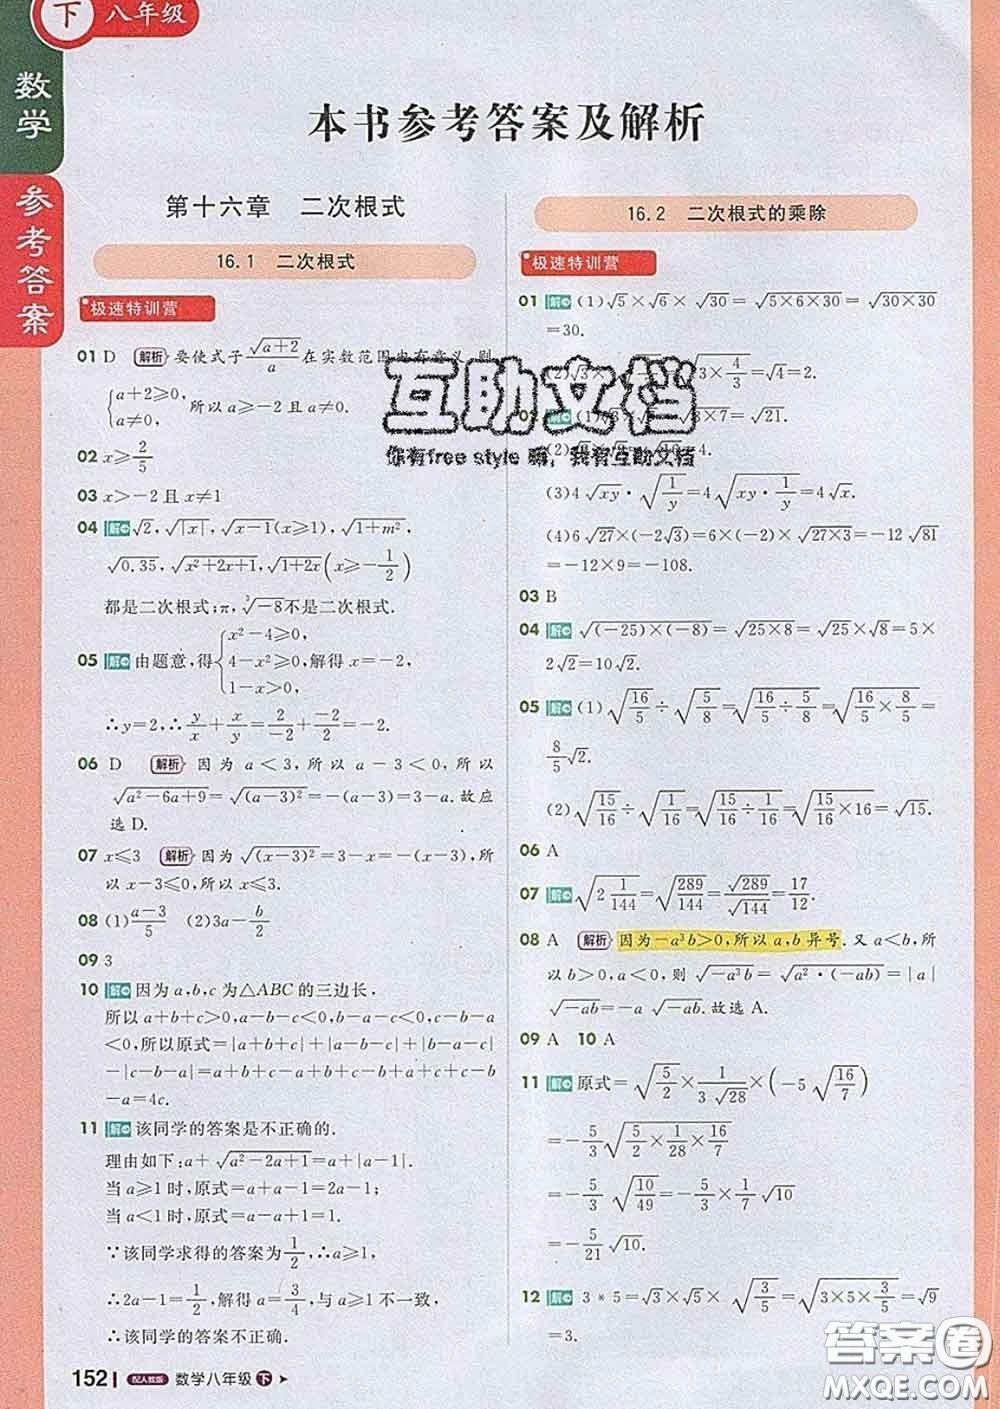 下 八年级
数学
参考答案
本书参考答案及解析
第十六章 二次根式
16.1 二次根式
极速特训营
01 D 解析 要使式子√(a+2)/a在实数范围内有意义,则
{a+2≥0, a≠0, 所以a≥-2且a≠0.
02 x≥2/5
03 x>-2且x≠1
04 解 √2,√|x|,√(x-1)(x≥1),√(1+m²),
√0.35,√(x²+2x+1),√(1+2x)(x≥-1/2)
都是二次根式;π,∛-8不是二次根式.
05 解 由题意,得{x²-4≥0, 4-x²≥0, 1-x>0, 解得x=-2,
∴y=2,∴y/x+x/y=2/-2+-2/2=-2.
06 D 解析 因为a<3,所以a-3<0,所以
√(a²-6a+9)=√(a-3)²=-(a-3)=3-a.故应
选D.
07 x≤3 解析 因为√(x-3)²=3-x=-(x-3),所
以x-3≤0,所以x≤3.
08 (1)(a-3)/5 (2)3a-b/2
09 3
10 解 因为a,b,c为△ABC的三边长,
所以a+b+c>0,a-b-c<0,b-a-c<0,c-b-a
<0,所以原式=|a+b+c|+|a-b-c|-|b-a-c|
-|c-b-a|=a+b+c+b+c-a+b-a-c+c-
b-a=4c.
11 解 该同学的答案是不正确的.
理由如下:a+√(a²-2a+1)=a+|a-1|.
当a≥1时,原式=a+a-1=2a-1;
当a<1时,原式=a-a+1=1.
∵该同学求得的答案为1/2,∴a≥1,
∴2a-1=1/2,解得a=3/4,与a≥1不一致,
∴该同学的答案不正确.
152 配人教版 数学八年级 下
16.2 二次根式的乘除
极速特训营
01 解 (1)√5×√6×√30=√(5×6×30)=√(30×30)
=30.
(2)√3×4/3=√4=2.
(1) 3×7=√21.
(3)4√xy·√(1/y)=4√(xy·1/y)=4√x.
(4)6√27×(-2√3)=6×(-2)×√(27×3)=-12√81
=-12×9=-108.
03 B
04 解 √((-25)×(-8))=√(25×8)=√25×√8=5×
2√2=10√2.
05 解 (1)√(16/5)÷√(5/8)=√(16/5÷5/8)=√(16/5×8/5)=
8/5√2.
(2)√(15/16)÷√(1/16)=√(15/16÷1/16)=√(15/16×16)=√15.
06 A
07 解 √(2 1/144)=√(289/144)=√289/√144=17/12.
08 A 解析 因为-a³b>0,所以a,b异号.又a<b,所
以b>0,a<0,则√(-a³b)=√(a²·(-ab))=|a|
√-ab=-a√-ab.故选A.
09 A 10 A
11 解 原式=√(5/2)×1/(3√28)×(-5√(16/7))
=-5/3√(5/2×1/28×16/7)
=-5/3√(10/49)=-5/3×1/7√10
=-5/21√10.
12 解 3*5=√3×√5×√(3/5)=√(3×5×3/5)=√9
=3.
互助文档
你有free style 嗨,我有互助文档
答案圈
MXQE.COM